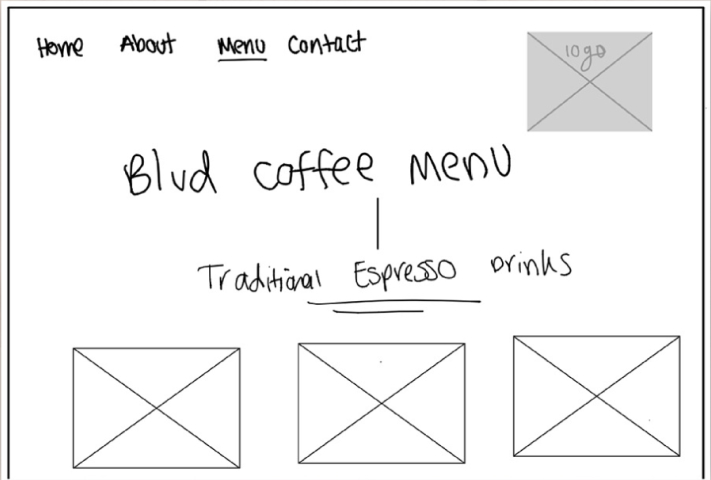 Home About Menu Contact
logo
Blvd coffee Menu
Traditional Espresso Drinks